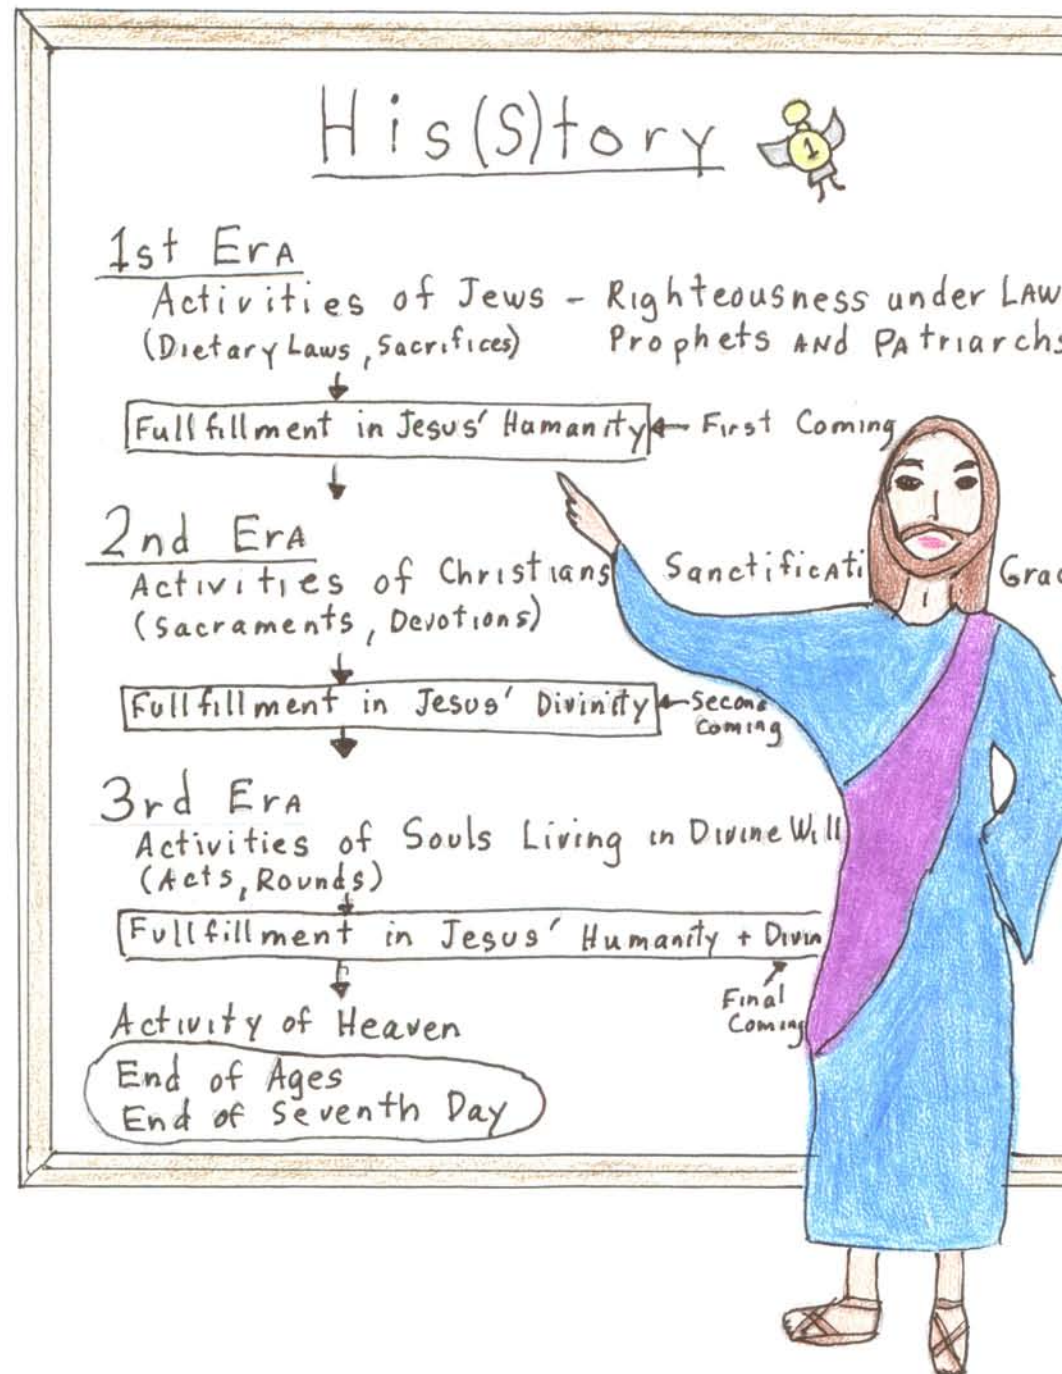 His(S)tory
1
1st Era
Activities of Jews - Righteousness under Law
(Dietary Laws, Sacrifices) Prophets and Patriarchs
Fullfillment in Jesus' Humanity First Coming
2nd Era
Activities of Christians Sanctificati Grac
(Sacraments, Devotions)
Fullfillment in Jesus' Divinity Second
Coming
3rd Era
Activities of Souls Living in Divine Will
(Acts, Rounds)
Fullfillment in Jesus' Humanity + Divin
Final
Coming
Activity of Heaven
End of Ages
End of Seventh Day